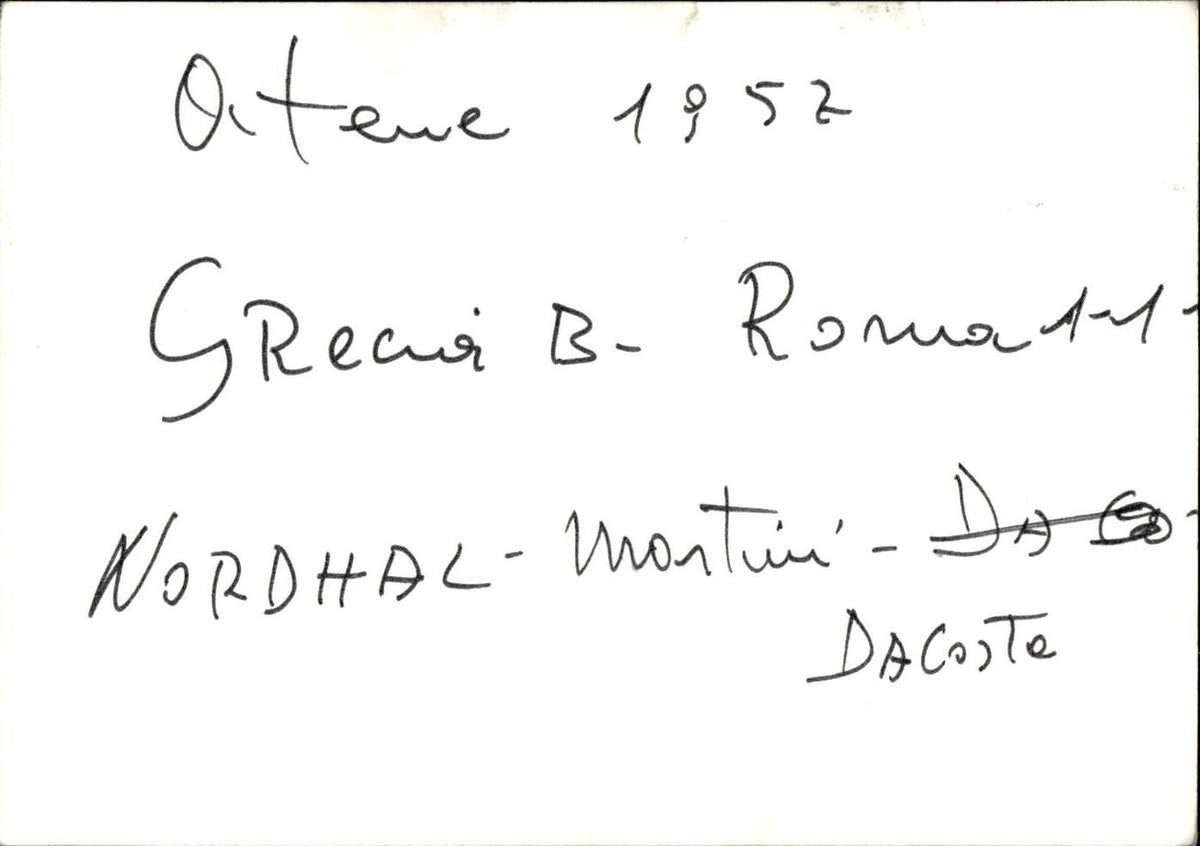 Atene 1952
GRecia B- Roma 1-1
NORDHAL - Martini -
DACOSTa